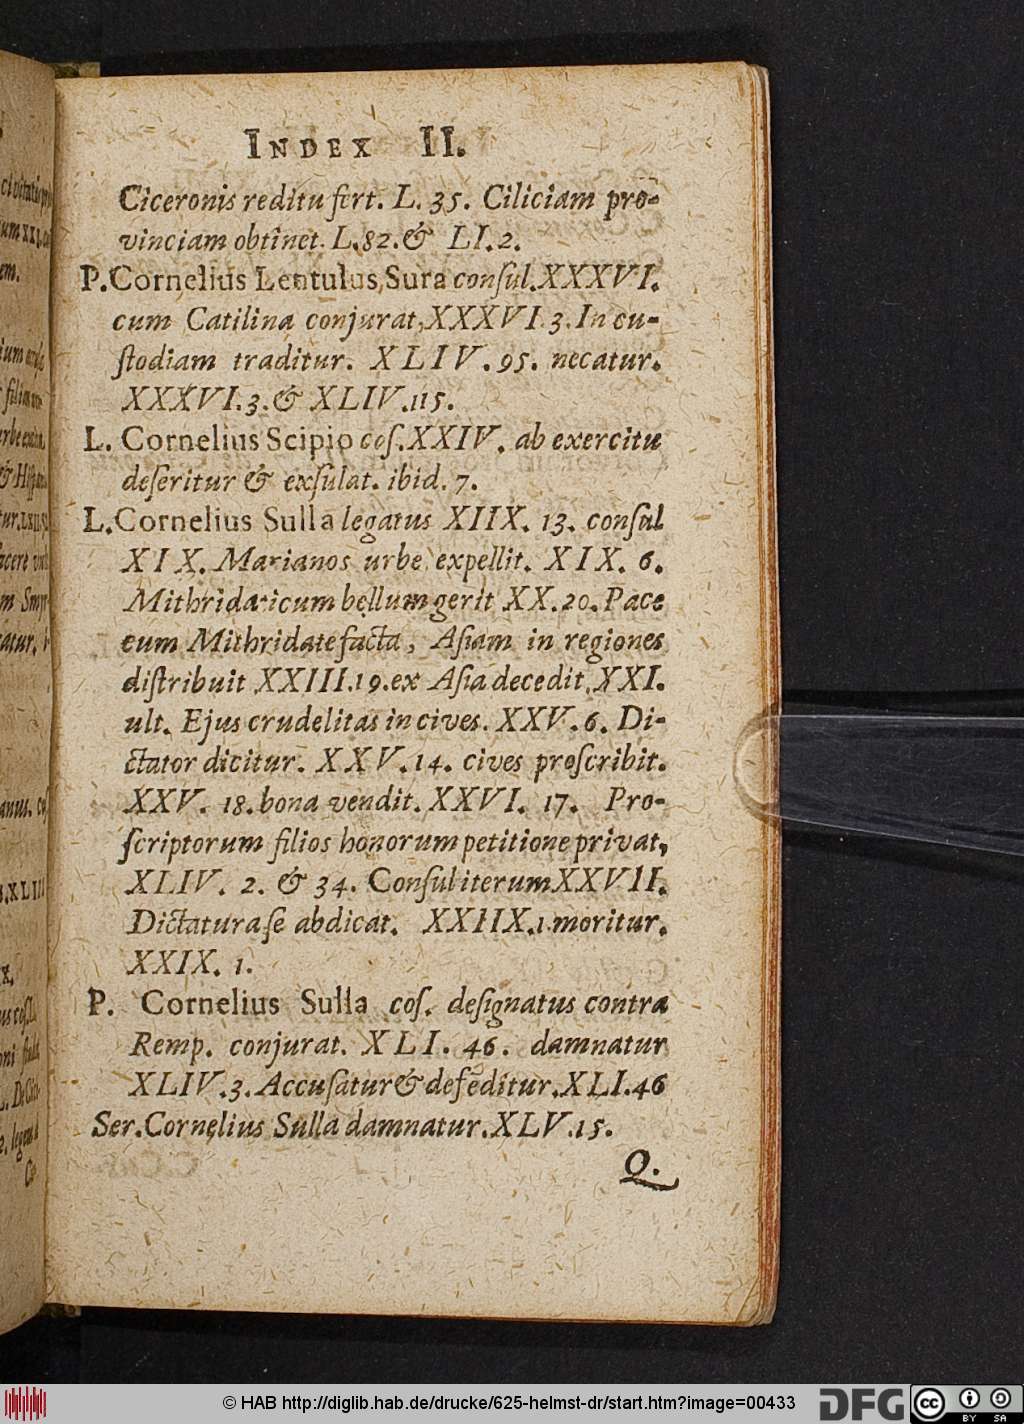 INDEX II.
Ciceronis reditu fert. L. 35. Ciliciam pro-
vinciam obtinet. L.82.& LI.2.
P.Cornelius Lentulus,Sura conſul.XXXVI.
cum Catilina conjurat,XXXVI.3.In cu-
ſtodiam traditur. XLIV.95. necatur.
XXXVI.3.& XLIV.115.
L. Cornelius Scipio coſ.XXIV. ab exercitu
deſeritur & exſulat. ibid. 7.
L.Cornelius Sulla legatus XIIX. 13. conſul
XIX. Marianos urbe expellit. XIX. 6.
Mithridaticum bellum gerit XX.20.Pace
cum Mithridate facta, Aſiam in regiones
diſtribuit XXIII.19.ex Aſia decedit,XXI.
ult. Ejus crudelitas in cives. XXV.6. Di-
ctator dicitur. XXV.14. cives proſcribit.
XXV. 18.bona vendit.XXVI. 17. Pro-
ſcriptorum filios honorum petitione privat,
XLIV. 2. & 34. Conſul iterum XXVII.
Dictatura ſe abdicat. XXIIX.1.moritur.
XXIX. 1.
P. Cornelius Sulla coſ. deſignatus contra
Remp. conjurat. XLI. 46. damnatur
XLIV.3.Accuſatur & defēditur.XLI.46
Ser.Cornelius Sulla damnatur.XLV.15.
Q.
© HAB http://diglib.hab.de/drucke/625-helmst-dr/start.htm?image=00433
DFG
cc BY SA